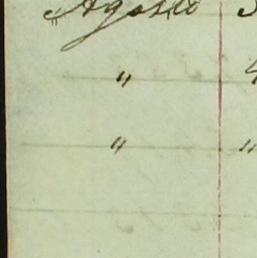 Agosto
"
" "